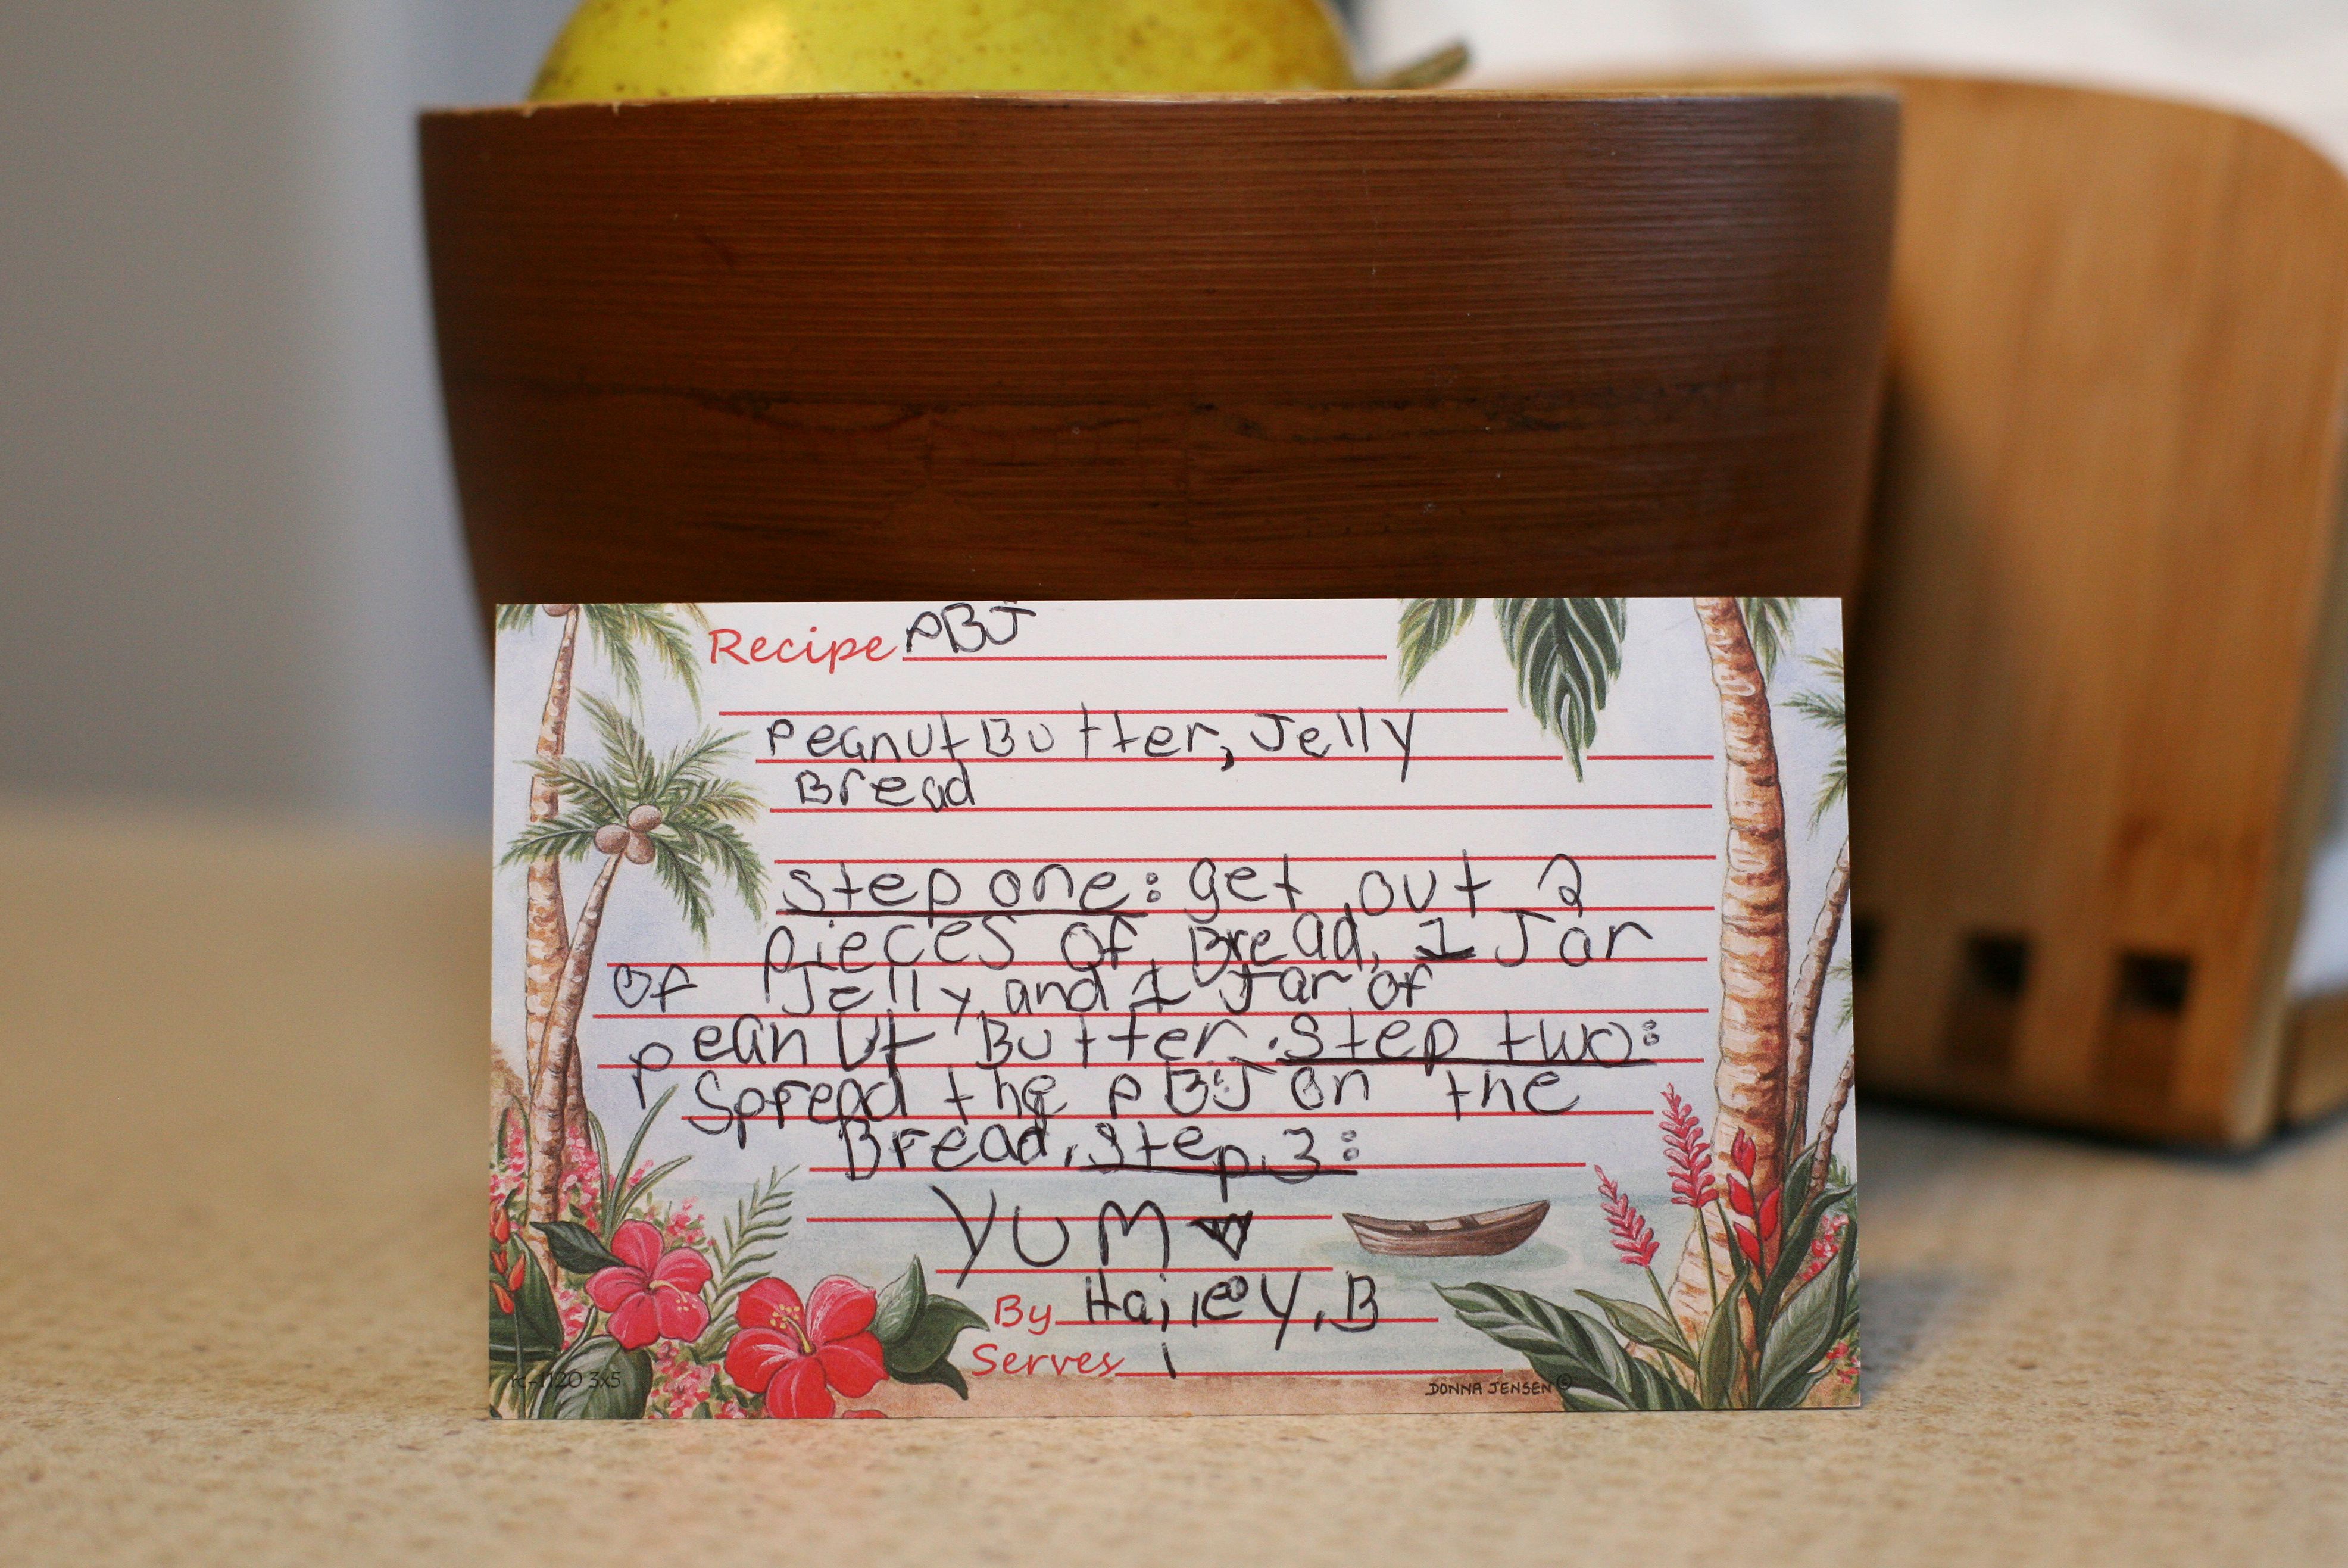 Recipe PBJ
Peanut Butter, Jelly
Bread
Step one: get out 2
pieces of Bread, 1 Jar
of Jelly and 1 Jar of
Peanut Butter. Step two:
Spread the PBJ on the
Bread. Step 3:
YUM
By Hailey, B
Serves 1
rc-1120 3x5
DONNA JENSEN ©